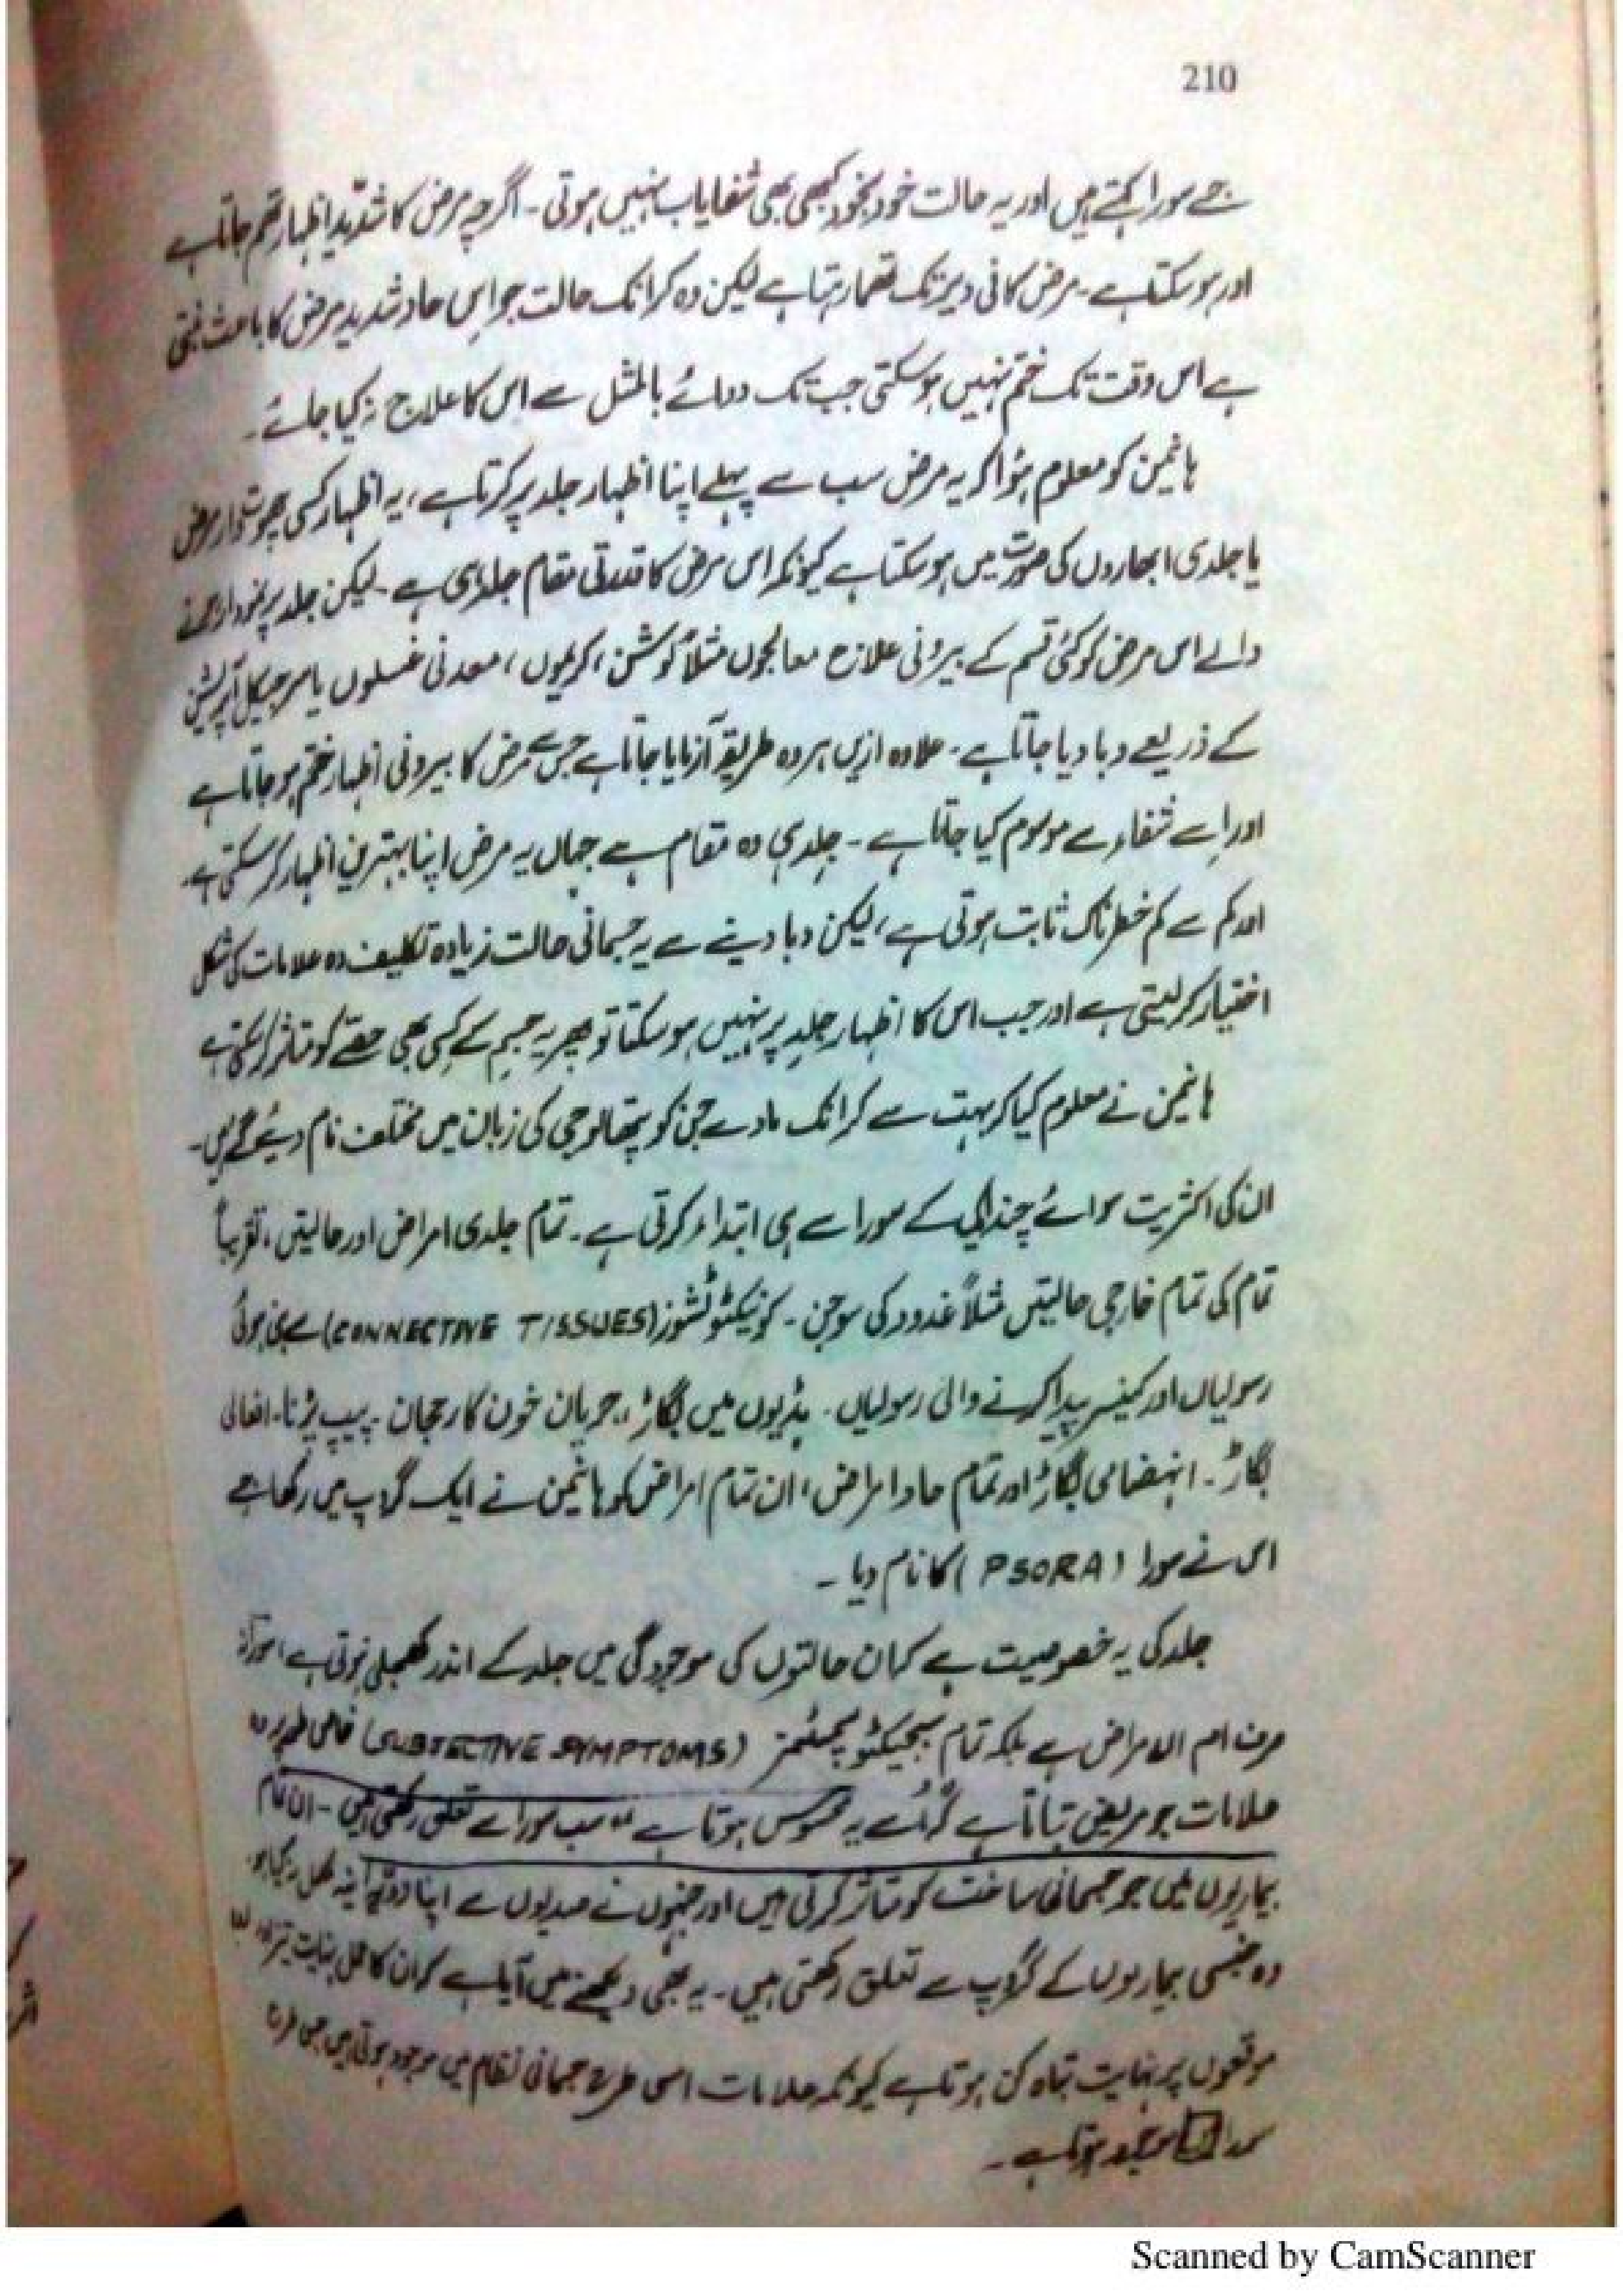 210
جسے سورا کہتے ہیں اور یہ حالت خود بخود کبھی بھی شفایاب نہیں ہوتی ۔ اگرچہ مرض کا شدید اظہار تھم جاتا ہے
اور ہو سکتا ہے ۔ مرض کافی دیر تک تھما رہتا ہے لیکن وہ کرانک حالت جو اِس حاد شدید مرض کا باعث بنتی
ہے اس وقت تک ختم نہیں ہو سکتی جب تک دوائے بالمثل سے اس کا علاج نہ کیا جائے ۔
ہانیمن کو معلوم ہؤا کہ یہ مرض سب سے پہلے اپنا اظہار جلد پر کرتا ہے ، یہ اظہار کسی چھوتدار مرض
یا جلدی ابھاروں کی صورت میں ہو سکتا ہے کیونکہ اس مرض کا قدرتی مقام جلد ہی ہے ۔ لیکن جلد پر نمودار ہونے
والے اس مرض کو کئی قسم کے بیرونی علاج معالجوں مثلاً لوشن ، کریموں ، معدنی غسلوں یا سرجیکل آپریشن
کے ذریعے دبا دیا جاتا ہے ۔ علاوہ ازیں ہر وہ طریقہ آزمایا جاتا ہے جس سے مرض کا بیرونی اظہار ختم ہو جاتا ہے
اور اِسے شفاء سے موسوم کیا جاتا ہے ۔ جلد ہی وہ مقام ہے جہاں یہ مرض اپنا بہترین اظہار کر سکتی ہے
اور کم سے کم خطرناک ثابت ہوتی ہے ، لیکن دبا دینے سے یہ جسمانی حالت زیادہ تکلیف دہ علامات کی شکل
اختیار کر لیتی ہے اور جب اس کا اظہار جلد پر نہیں ہو سکتا تو پھر یہ جسم کے کسی بھی حصّے کو متاثر کر سکتی ہے
ہانیمن نے معلوم کیا کہ بہت سے کرانک مادے جن کو پتھالوجی کی زبان میں مختلف نام دیئے گئے ہیں ۔
ان کی اکثریت سوائے چند ایک کے سورا سے ہی ابتداء کرتی ہے ۔ تمام جلدی امراض اور حالتیں ، تقریباً
تمام کی تمام خارجی حالتیں مثلاً غدود کی سوجن ۔ کونیکٹو ٹشوز (CONNECTIVE TISSUES) سے بنی ہوئی
رسولیاں اور کینسر پیدا کرنے والی رسولیاں ۔ ہڈیوں میں بگاڑ ، جریان خون کا رجحان ۔ پیپ پڑنا ۔ افعالی
بگاڑ ۔ انہضامی بگاڑ اور تمام حاد امراض ، ان تمام امراض کو ہانیمن نے ایک گروپ میں رکھا جسے
اس نے سورا (PSORA) کا نام دیا ۔
جلد کی یہ خصوصیت ہے کہ ان حالتوں کی موجودگی میں جلد کے اندر کھجلی ہوتی ہے
صرف ام الامراض ہے بلکہ تمام سبجیکٹو سمپٹمز (SUBJECTIVE SYMPTOMS) خاص طور وہ
علامات جو مریض بتاتا ہے کہ اُسے یہ محسوس ہوتا ہے وہ سب سورا سے تعلق رکھتی ہیں ۔ ان تمام
بیماریوں میں جو جسمانی ساخت کو متاثر کرتی ہیں اور جنہوں نے صدیوں سے اپنا
وہ جنسی بیماریوں کے گروپ سے تعلق رکھتی ہیں ۔ یہ بھی دیکھنے میں آیا ہے کہ ان کا
موقعوں پر نہایت تباہ کن ہوتا ہے کیونکہ علامات اسی طرح جسمانی نظام میں موجود ہوتی ہیں جس طرح
ہوتا ہے ۔
Scanned by CamScanner